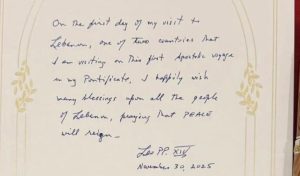 On the first day of my visit to
Lebanon, one of two countries that
I am visiting on this first Apostolic voyage
in my Pontificate, I happily wish
many blessings upon all the people
of Lebanon, praying that PEACE
will reign.
Leo PP. XIV
November 30, 2025